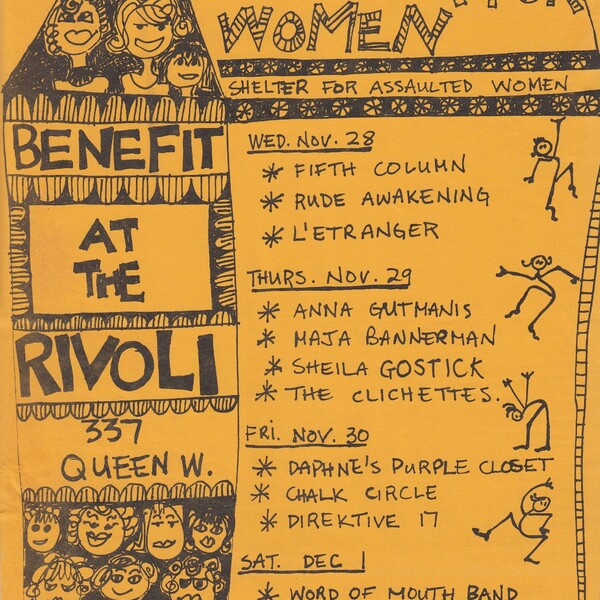 WOMEN
SHELTER FOR ASSAULTED WOMEN
BENEFIT
AT
THE
RIVOLI
337
QUEEN W.
WED. NOV. 28
* FIFTH COLUMN
* RUDE AWAKENING
* L'ETRANGER
THURS. NOV. 29
* ANNA GUTMANIS
* MAJA BANNERMAN
* SHEILA GOSTICK
* THE CLICHETTES.
FRI. NOV. 30
* DAPHNE'S PURPLE CLOSET
* CHALK CIRCLE
* DIREKTIVE 17
SAT. DEC 1
* WORD OF MOUTH BAND